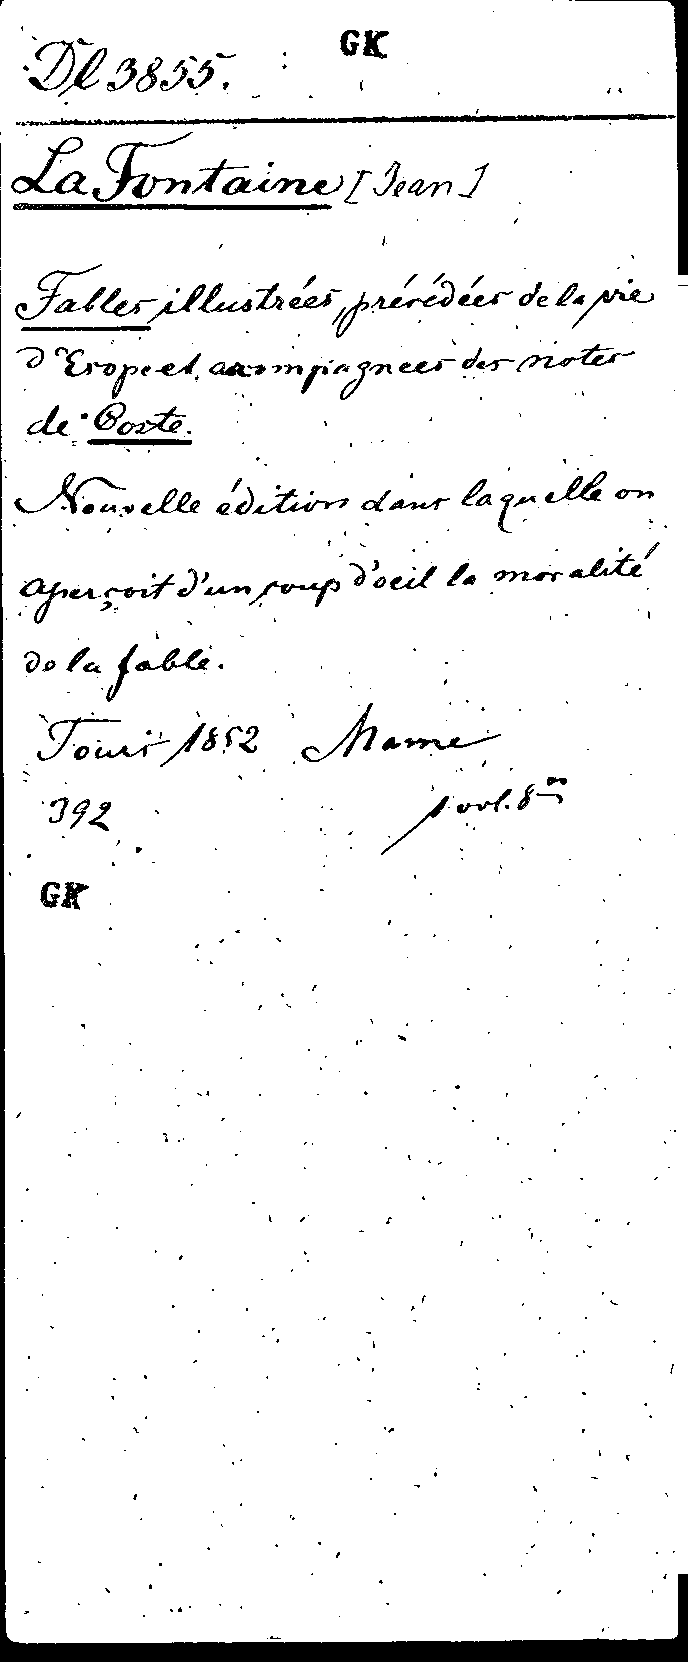 GK
Dl 3855.
La Fontaine [Jean]
Fables illustrées, précédées de la vie
d'Esope et accompagnées des notes
de Coste.
Nouvelle édition dans laquelle on
aperçoit d'un coup d'oeil la moralité
de la fable.
Tours 1852 Mame
392 1 vol. 8º
GK